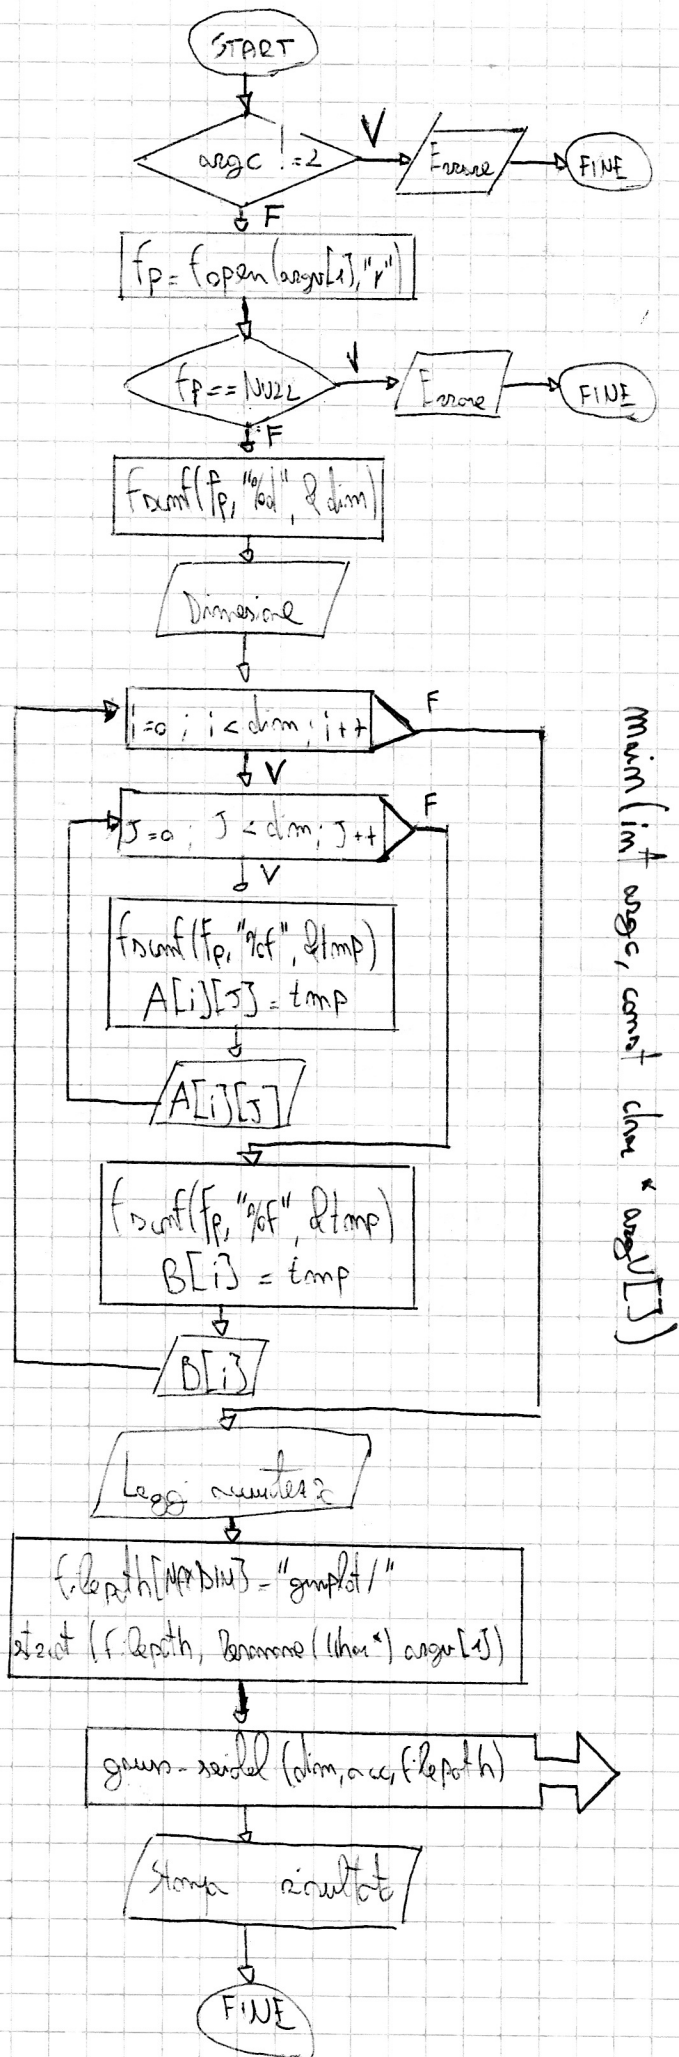 START
argc != 2
V
Errore
FINE
F
fp = fopen(argv[1], "r")
fp == NULL
V
Errore
FINE
F
fscanf(fp, "%d", &dim)
Dimesione
i=0 ; i < dim ; i++
F
V
J=0 ; J < dim ; J++
F
V
fscanf(fp, "%f", &tmp)
A[i][J] = tmp
A[i][J]
fscanf(fp, "%f", &tmp)
B[i] = tmp
B[i]
main(int argc, const char * argv[])
Leggi
filepath[MAXDIM] = "gnuplot/"
strcat (filepath, basename((char*) argv[1])
gauss-seidel (dim, acc, filepath)
Stampa risultati
FINE